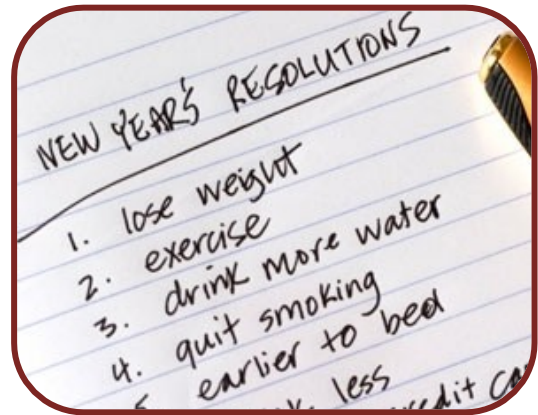 NEW YEAR'S RESOLUTIONS
1. lose weight
2. exercise
3. drink more water
4. quit smoking
5 earlier to bed
less
credit